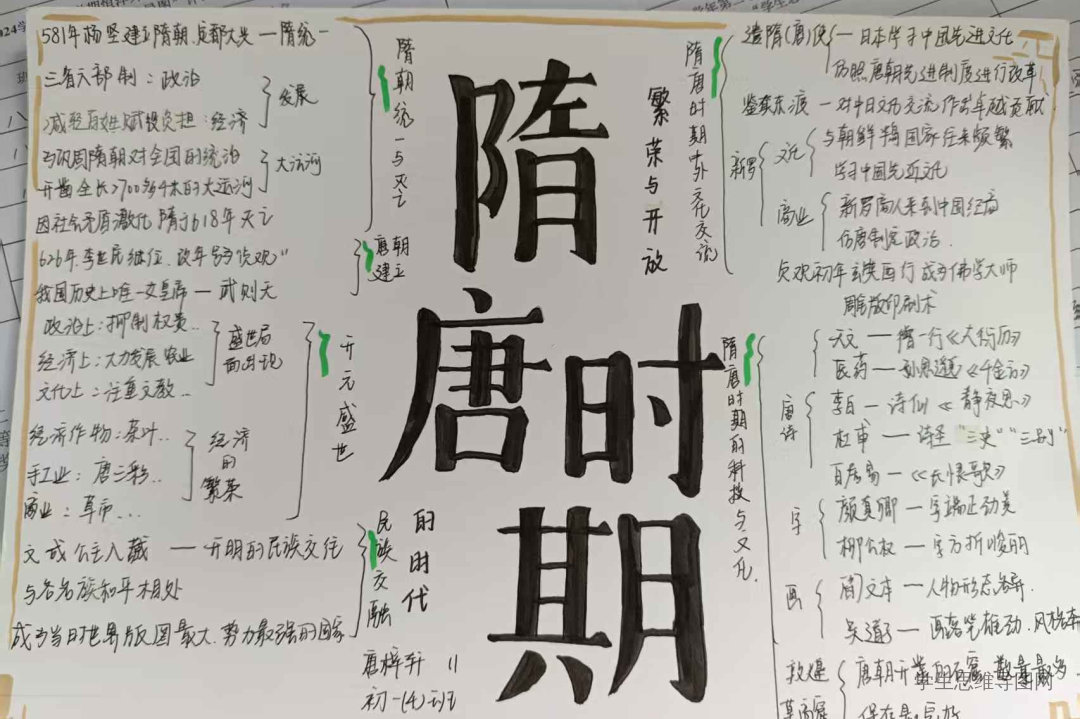 581年杨坚建立隋朝,定都大兴—隋统一
三省六部制：政治
减轻百姓赋役负担：经济
发展
为巩固隋朝对全国的统治
开凿全长2700多千米的大运河
大运河
因社会矛盾激化 隋于618年灭亡
隋朝统一与灭亡
626年,李世民继位.改年号为"贞观"
唐朝建立
我国历史上唯一女皇帝—武则天
政治上：抑制权贵..
经济上：大力发展农业
文化上：注重文教...
盛世局面出现
经济作物：茶叶..
手工业：唐三彩..
商业：草市....
经济的繁荣
开元盛世
文成公主入藏—开明的民族交往
与各民族和平相处
成为当时世界版图最大.势力最强的国家
民族交融
隋唐时期
繁荣与开放
的时代
唐梓轩 11
初一(4)班
隋唐时期中外文化交流
遣隋(唐)使—日本学习中国先进文化
仿照唐朝先进制度进行改革
鉴真东渡—对中日文化交流作出卓越贡献
新罗
文化
与朝鲜半岛国家往来频繁
学习中国先进文化
商业
新罗商人来到中国经商
仿唐制定政治.
贞观初年玄奘西行 成为佛学大师
隋唐时期的科技与文化.
雕版印刷术
天文—僧一行《大衍历》
医药—孙思邈《千金方》
唐诗
李白—诗仙《静夜思》
杜甫—诗圣"三吏""三别"
白居易—《长恨歌》
字
颜真卿—字端正劲美
柳公权—字方折峻丽
画
阎立本—人物形态各异.
吴道子—画落笔雄劲.风格奔
敦煌莫高窟
唐朝开凿的石窟 数量最多
保存最完好
学生思维导图网